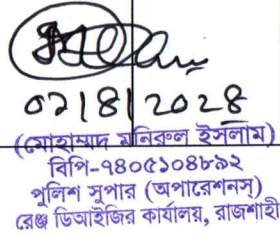 ০২/৪/২০২৪
(মোহাম্মদ মনিরুল ইসলাম)
বিপি-৭৪০৫১০৪৮৯২
পুলিশ সুপার (অপারেশনস্)
রেঞ্জ ডিআইজির কার্যালয়, রাজশাহী